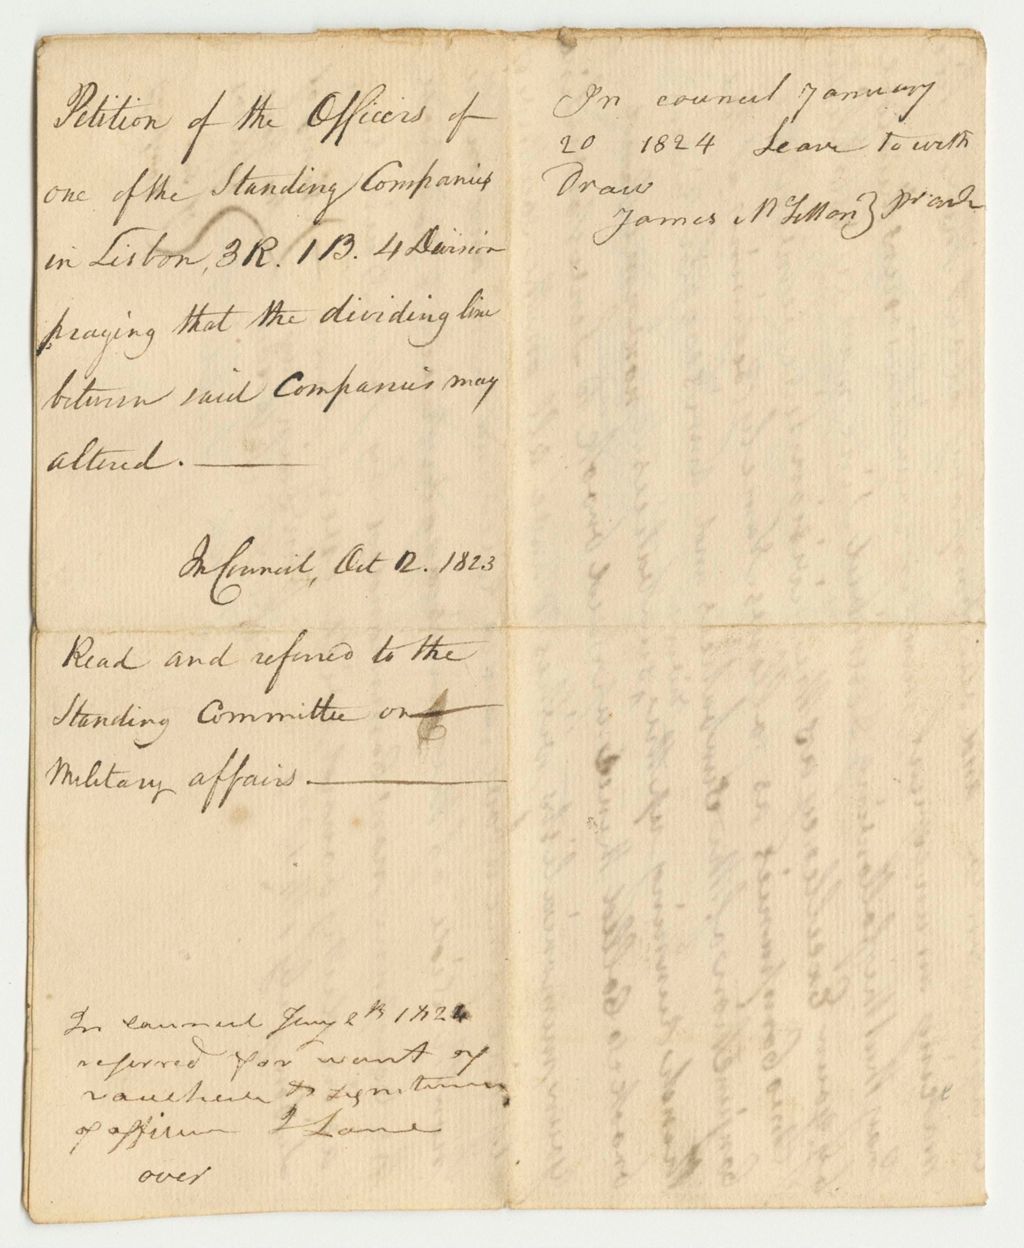 Petition of the Officers of
one of the Standing Companies
in Lisbon, 3 R. 1 B. 4 Division
praying that the dividing line
between said Companies may
altered.
In Council, Oct 12. 1823
Read and referred to the
Standing Committee on
Military affairs.
In council Jany 1824
referred for want of
to
of officers Lane
over
In council January
20 1824 Leave to with
Draw
James